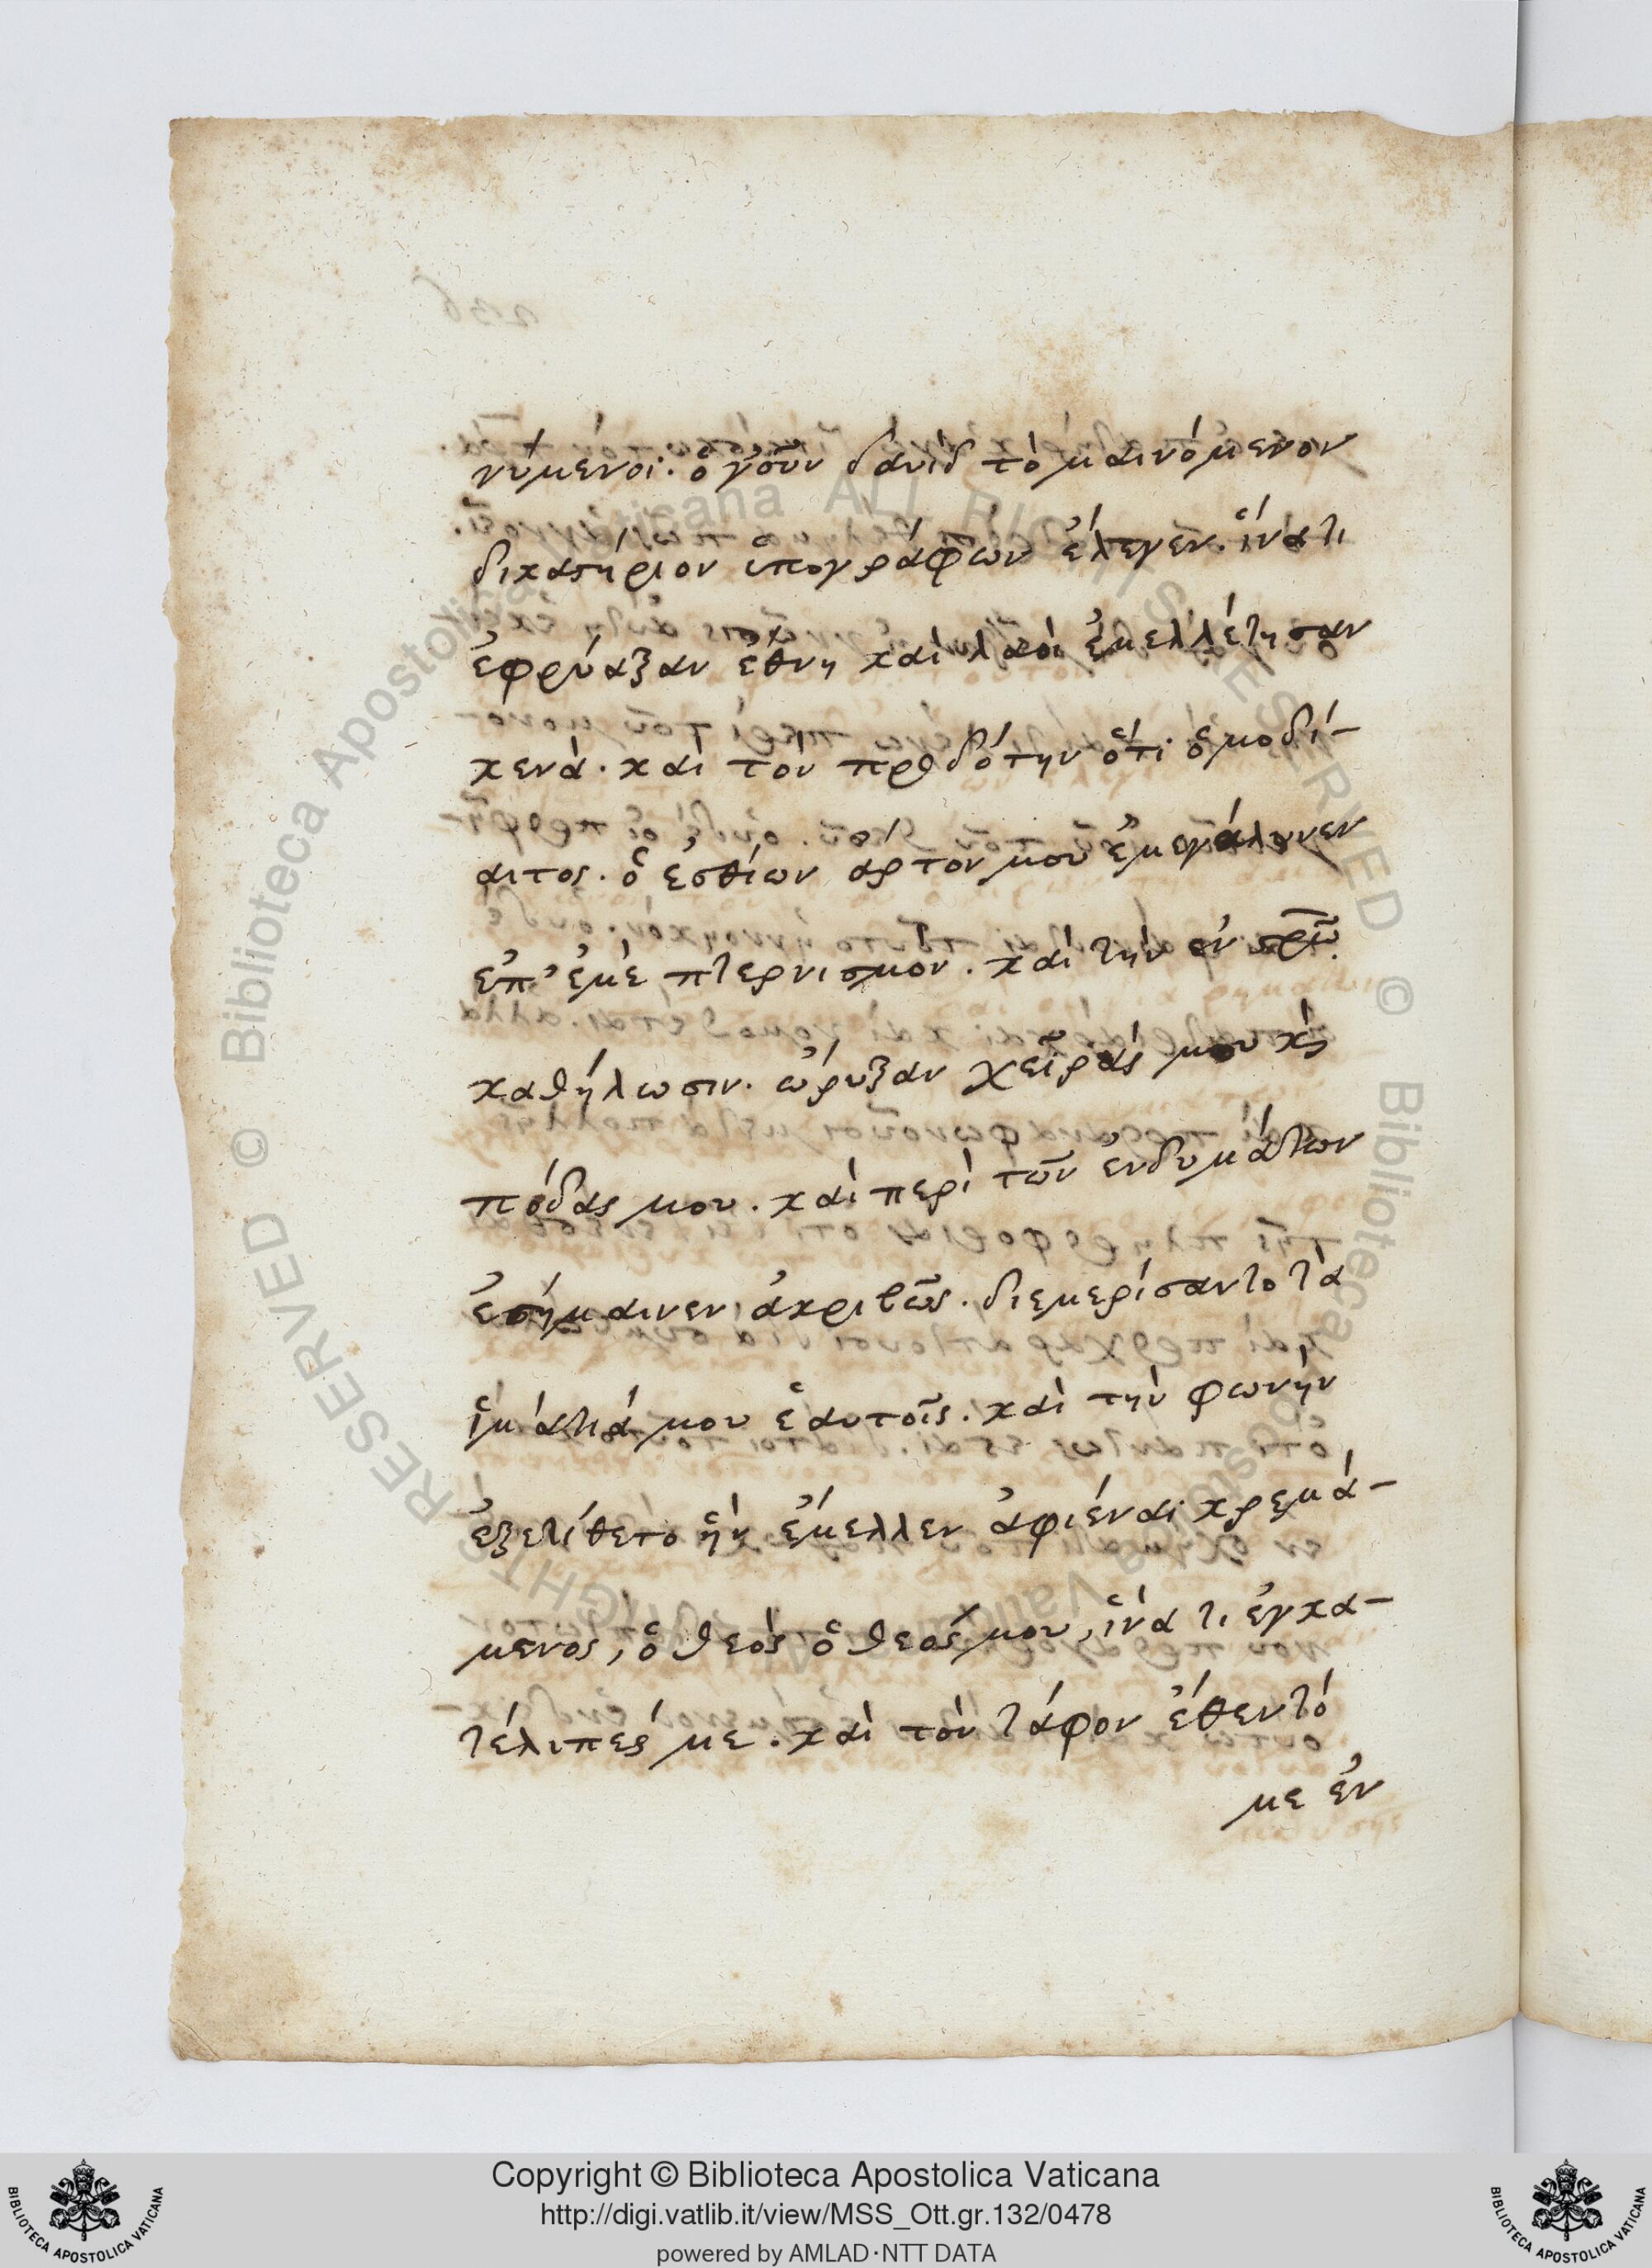 νύμενοι· ὁ γοῦν δαυὶδ τὸ μαινόμενον
δικαστήριον ὑπογράφων ἔλεγεν. ἵνα τι
ἐφρύαξαν ἔθνη καὶ λαοὶ ἐμελλέτησαν
κενά. καὶ τὸν προδότην ὅτι ὁμοδί-
αιτος. ὁ ἐσθίων ἄρτον μου ἐμεγάλυνεν
ἐπ' ἐμὲ πτερνισμον. καὶ τὴν ἐν στρῶ
καθήλωσιν. ὤρυξαν χεῖράς μου κὶ
πόδας μου. καὶ περὶ τῶν ἐνδυμάτων
ἐσήμαινεν ἀκριβῶς. διεμερίσαντο τὰ
ἱμάτιά μου ἑαυτοῖς. καὶ τὴν φωνὴν
ἐξετίθετο ἣν ἔμελλεν ἀφιέναι κρεμά-
μενος, ὁ θεὸς ὁ θεός μου, ἵνα τι ἐγκα-
τέλιπές με. καὶ τὸν τάφον ἔθεντό
με ἐν
Copyright © Biblioteca Apostolica Vaticana
http://digi.vatlib.it/view/MSS_Ott.gr.132/0478
powered by AMLAD·NTT DATA
BIBLIOTECA APOSTOLICA VATICANA
BIBLIOTECA APOSTOLICA VATICANA